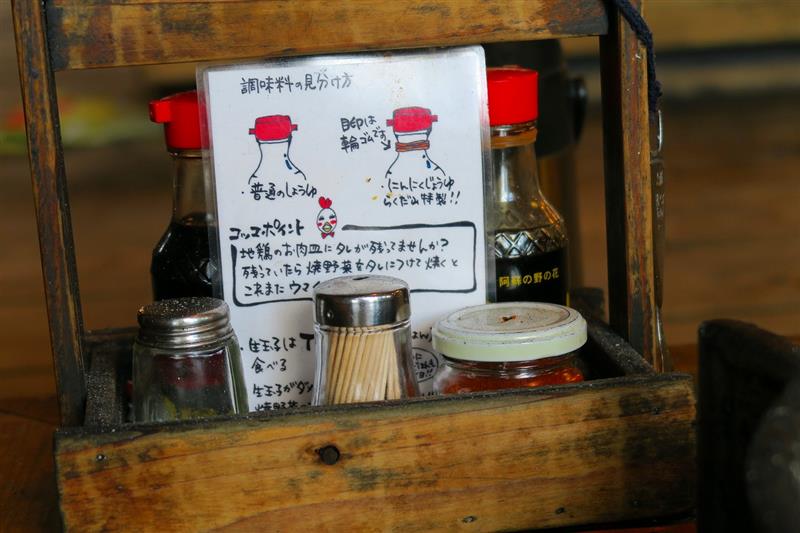 調味料の見分け方
目印は
輪ゴムです
・普通のしょうゆ
・にんにくじょうゆ
らくだ山特製!!
コッコポイント
地鶏のお肉皿にタレが残ってませんか?
残っていたら焼野菜をタレにつけて焼くと
これまたウマイ
阿蘇の野の花
・生玉子は
食べる
生玉子が
焼野菜